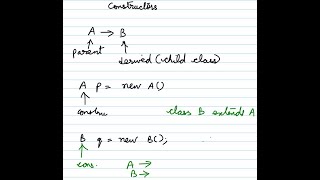 Constructors
A → B
parent
derived (child class)
A p = new A()
constru
class B extends A
B q = new B();
cons. A →
B →